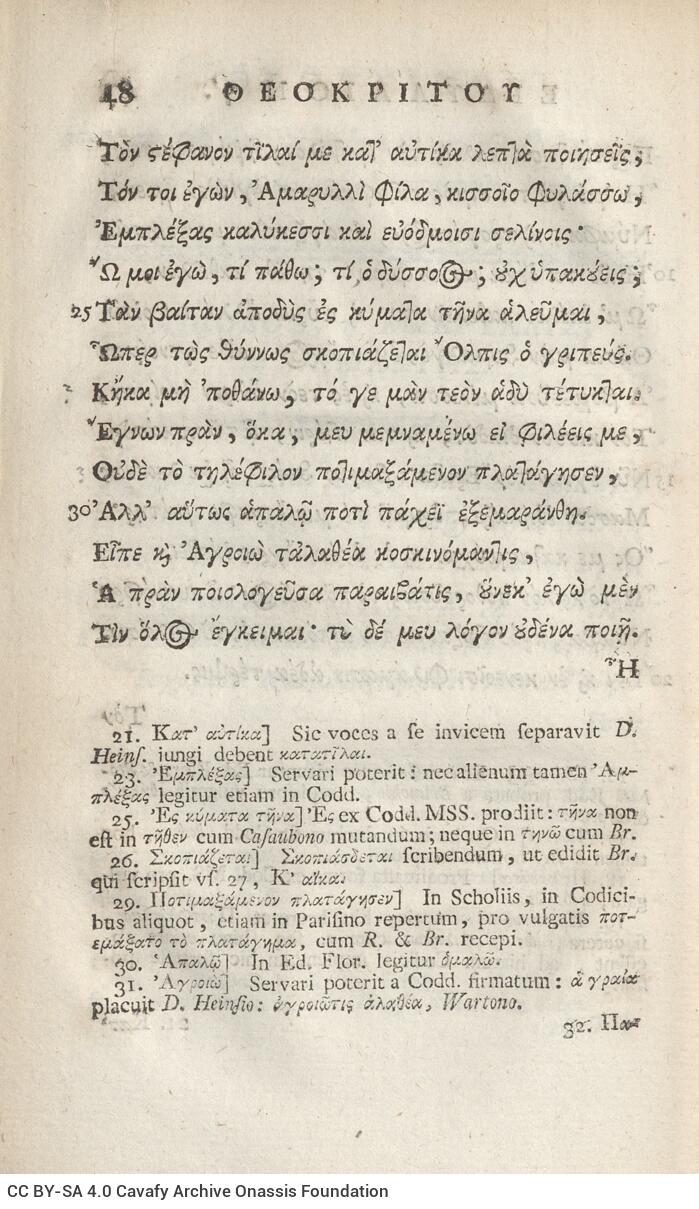 48 ΘΕΟΚΡΙΤΟΥ
Τὸν ϛέφανον τῖλαί με κατ' αὐτίκα λεπτὰ ποιησεῖς;
Τόν τοι ἐγὼν, Ἀμαρυλλὶ φίλα, κισσοῖο φυλάσσω,
Ἐμπλέξας καλύκεσσι καὶ εὐόδμοισι σελίνοις·
Ὤ μοι ἐγὼ, τί πάθω; τί ὁ δύσσοος; οὐχ ὑπακούεις;
25 Τὰν βαίταν ἀποδὺς ἐς κύματα τῆνα ἁλεῦμαι,
Ὧπερ τὼς θύννως σκοπιάζεται Ὄλπις ὁ γριπεύς.
Κἤκα μὴ 'ποθάνω, τό γε μὰν τεὸν ἁδὺ τέτυκται.
Ἔγνων πρὰν, ὅκα, μευ μεμναμένω εἰ φιλέεις με,
Οὐδὲ τὸ τηλέφιλον ποτιμαξάμενον πλατάγησεν,
30 Ἀλλ' αὔτως ἁπαλῷ ποτὶ πάχεϊ ἐξεμαράνθη.
Εἶπε καὶ Ἀγροιὼ τἀλαθέα κοσκινόμαντις,
Ἁ πρὰν ποιολογεῦσα παραιβάτις, οὕνεκ' ἐγὼ μὲν
Τὶν ὅλος ἔγκειμαι· τὺ δέ μευ λόγον οὐδένα ποιῇ.
Ἦ
21. Κατ' αὐτίκα] Sic voces a se invicem separavit D.
Heinſ. iungi debent κατατῖλαι.
23. Ἐμπλέξας] Servari poterit: nec alienum tamen Ἀμ-
πλέξας legitur etiam in Codd.
25. Ἐς κύματα τῆνα] Ἐς ex Codd. MSS. prodiit: τῆνα non
eſt in τῆθεν cum Caſaubono mutandum; neque in τηνῶ cum Br.
26. Σκοπιάζεται] Σκοπιάσδεται ſcribendum, ut edidit Br.
qui ſcripſit vſ. 27, Κ' αἴκα.
29. Ποτιμαξάμενον πλατάγησεν] In Scholiis, in Codici-
bus aliquot, etiam in Pariſino repertum, pro vulgatis ποτ-
εμάξατο τὸ πλατάγημα, cum R. & Br. recepi.
30. Ἁπαλῷ] In Ed. Flor. legitur ὁμαλῶ.
31. Ἀγροιὼ] Servari poterit a Codd. firmatum: ἁ γραία
placuit D. Heinſio: ἀγροιῶτις ἀλαθέα, Wartono.
32. Πα-
CC BY-SA 4.0 Cavafy Archive Onassis Foundation